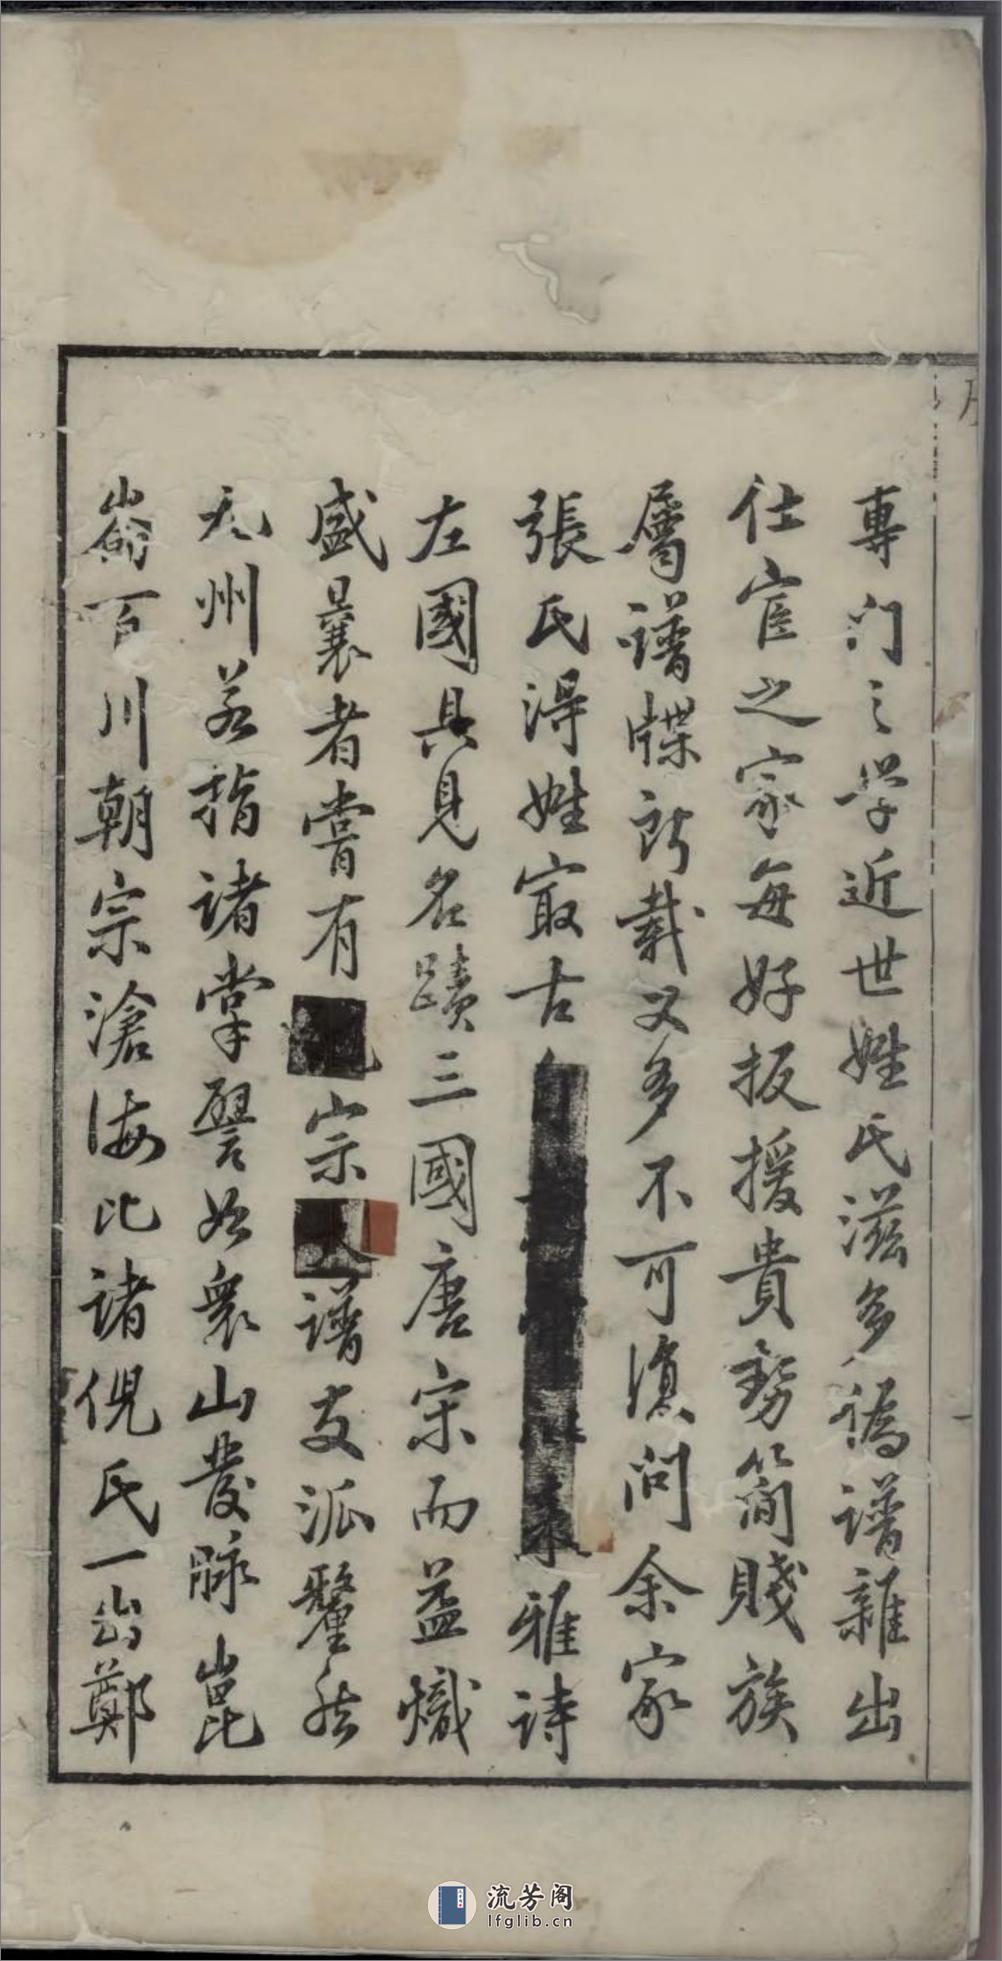 專门之学近世姓氏滋多僞譜雜出
仕宦之家每好扳援貴勢簡賤族
屬譜牒所載又多不可湏問余家
張氏得姓㝡古雅詩
左國具見名蹟三國唐宋而益熾
盛曩者嘗有宗譜支派釐然
九州若指諸掌譬如衆山發脉崑
崙百川朝宗滄海比諸倪氏一出鄭
流芳阁
lfglib.cn